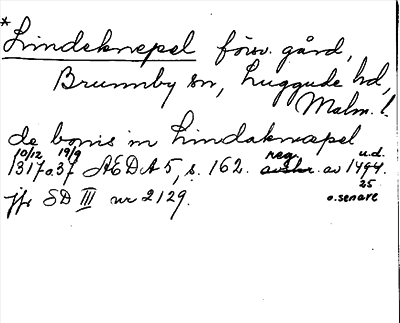 * Lindeknepel försv. gård,
Brunnby sn, Luggude hd,
Malm. l.
de bonis in Lindaknæpel
10/12 19/9 reg. u.d.
1317 o. 37 ÆDA 5, s. 162. avskr. av 1494.
25
jfr SD III nr 2129. o. senare